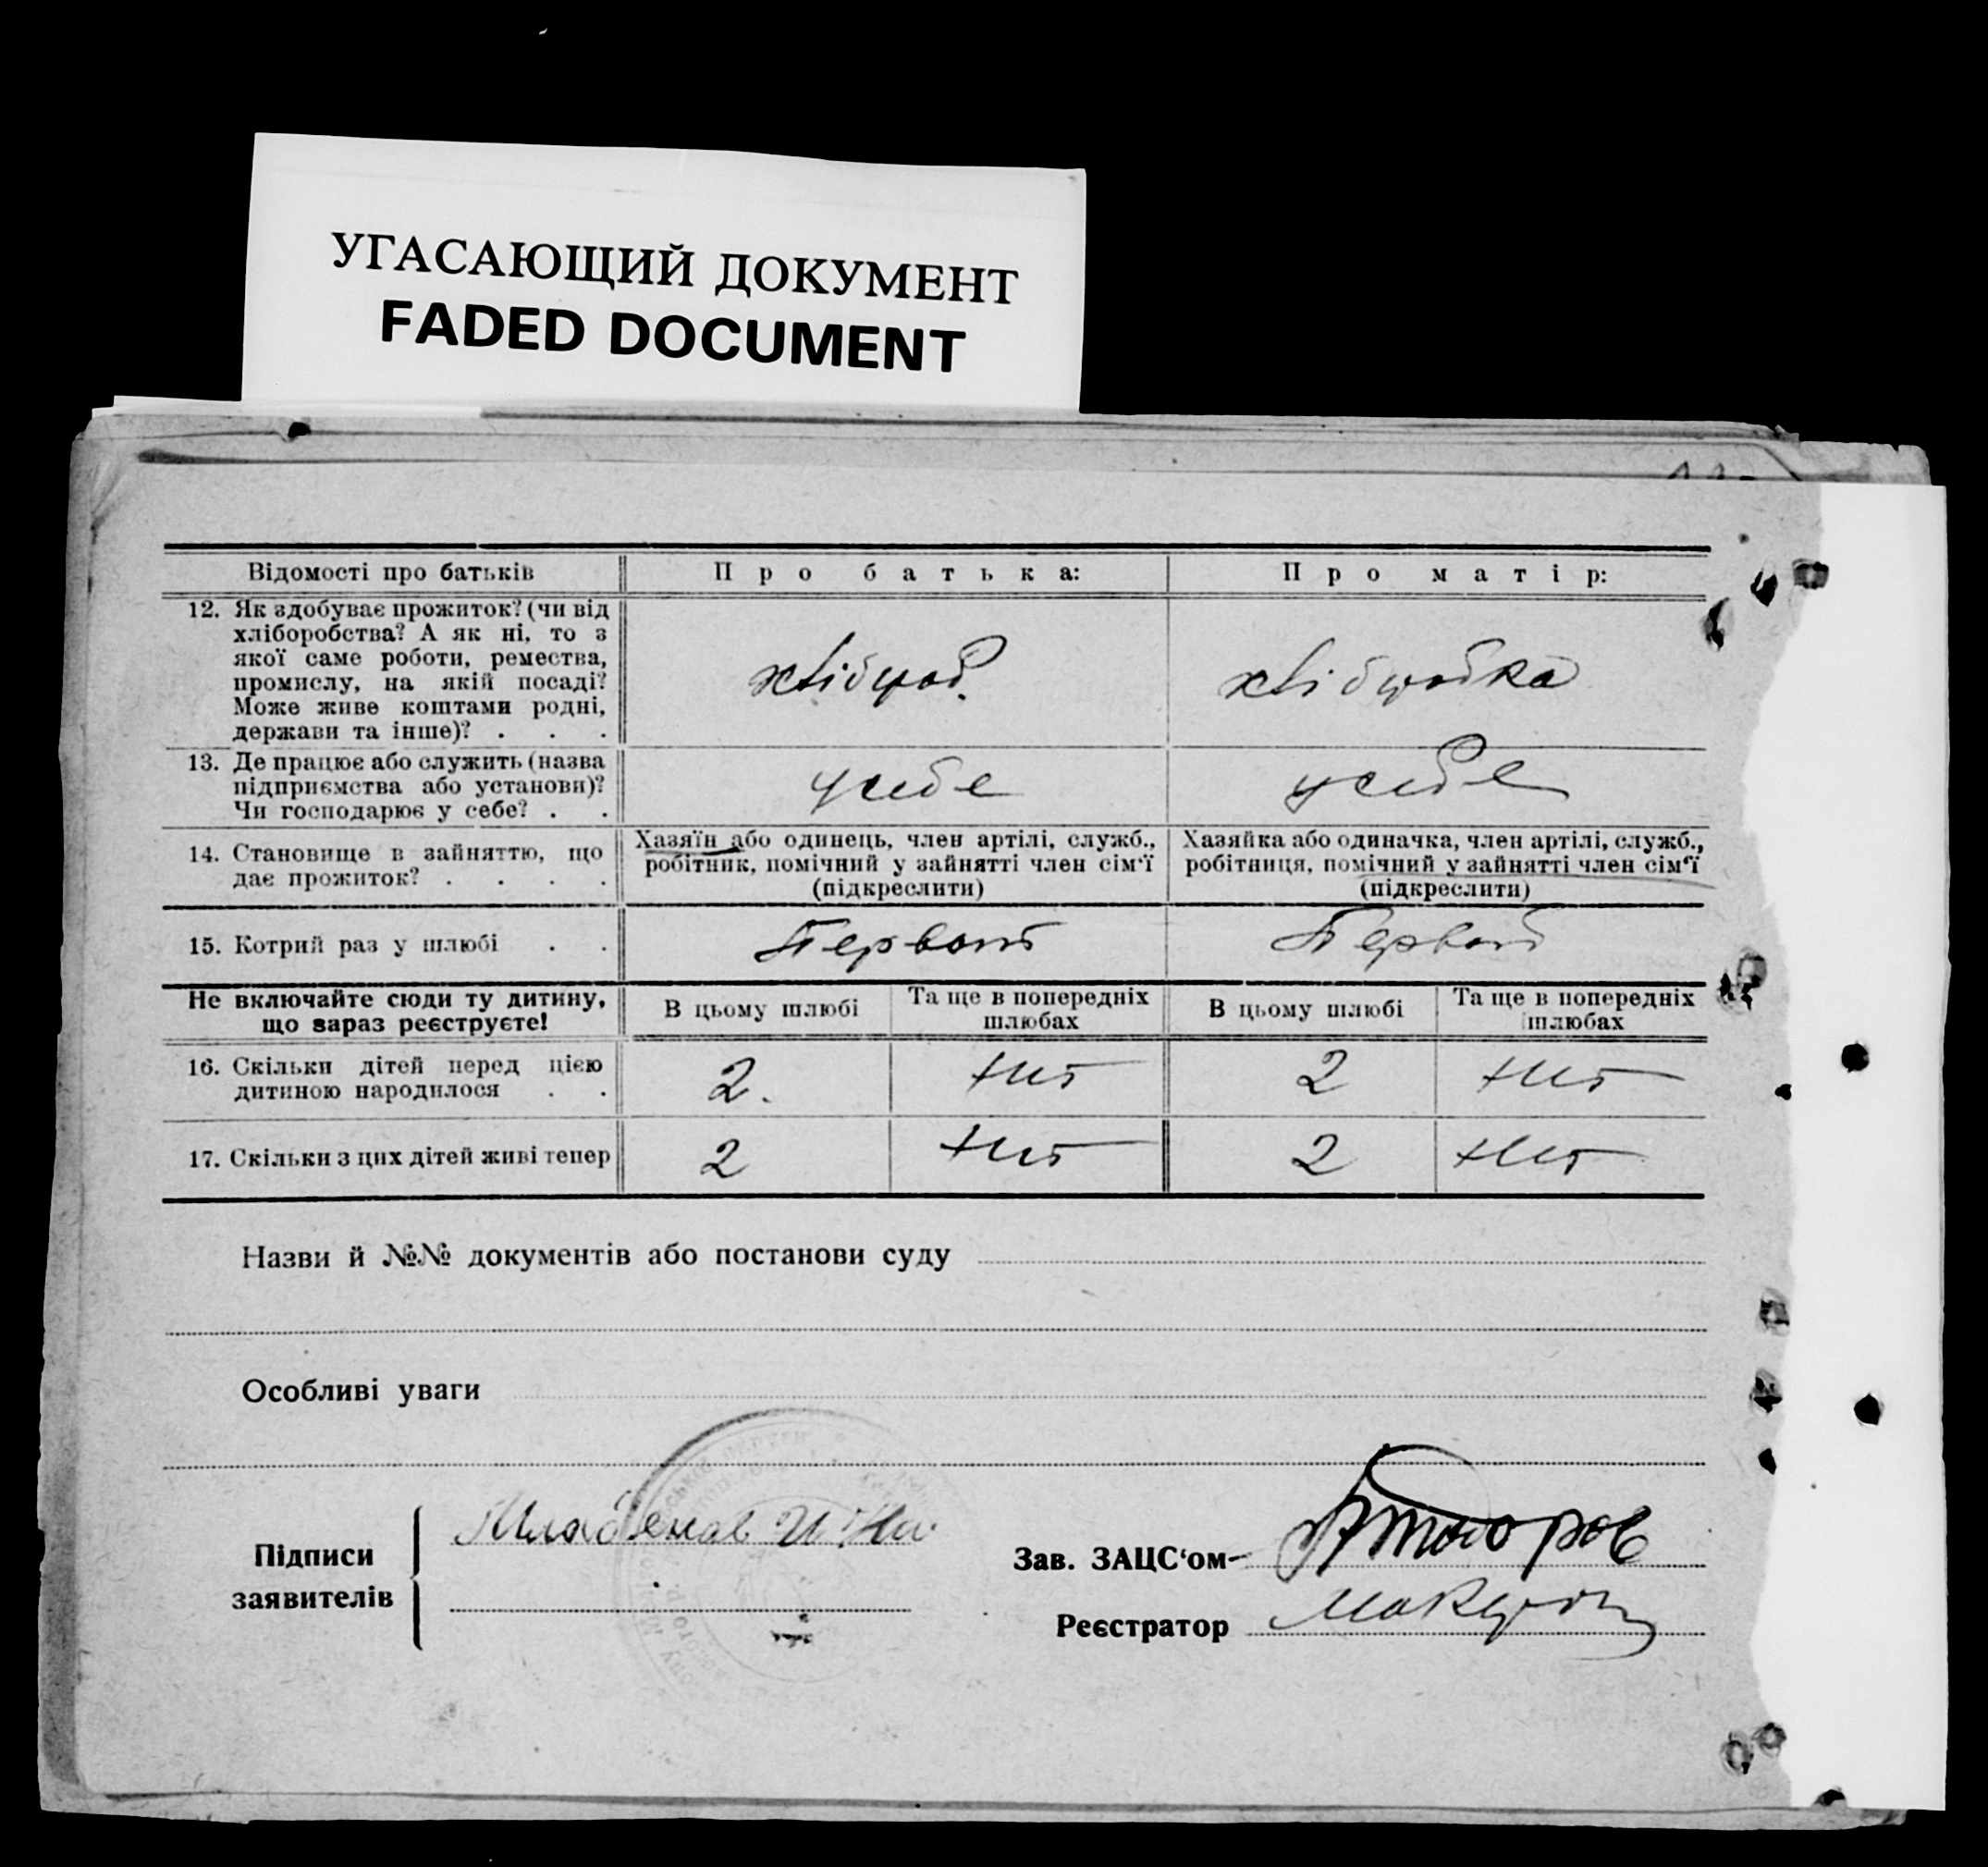 УГАСАЮЩИЙ ДОКУМЕНТ
FADED DOCUMENT
Відомості про батьків
Про батька:
Про матір:
12. Як здобуває прожиток? (чи від
хліборобства? А як ні, то з
якої саме роботи, ремества,
промислу, на якій посаді?
Може живе коштами родні,
держави та інше)? . . .
хлібороб.
хліборобка
13. Де працює або служить (назва
підприємства або установи)?
Чи господарює у себе? . .
у себе
у себе
14. Становище в зайняттю, що
дає прожиток? . . . .
Хазяїн або одинець, член артілі, служб.,
робітник, помічний у зайнятті член сім'ї
(підкреслити)
Хазяйка або одиначка, член артілі, служб.,
робітниця, помічний у зайнятті член сім'ї
(підкреслити)
15. Котрий раз у шлюбі . .
Первый
Первый
Не включайте сюди ту дитину,
що зараз реєструєте!
В цьому шлюбі
Та ще в попередніх
шлюбах
В цьому шлюбі
Та ще в попередніх
шлюбах
16. Скільки дітей перед цією
дитиною народилося . .
2.
нет
2
нет
17. Скільки з цих дітей живі тепер
2
нет
2
нет
Назви й №№ документів або постанови суду
Особливі уваги
Підписи
заявителів
Младенов И
Зав. ЗАЦС'ом
Реєстратор